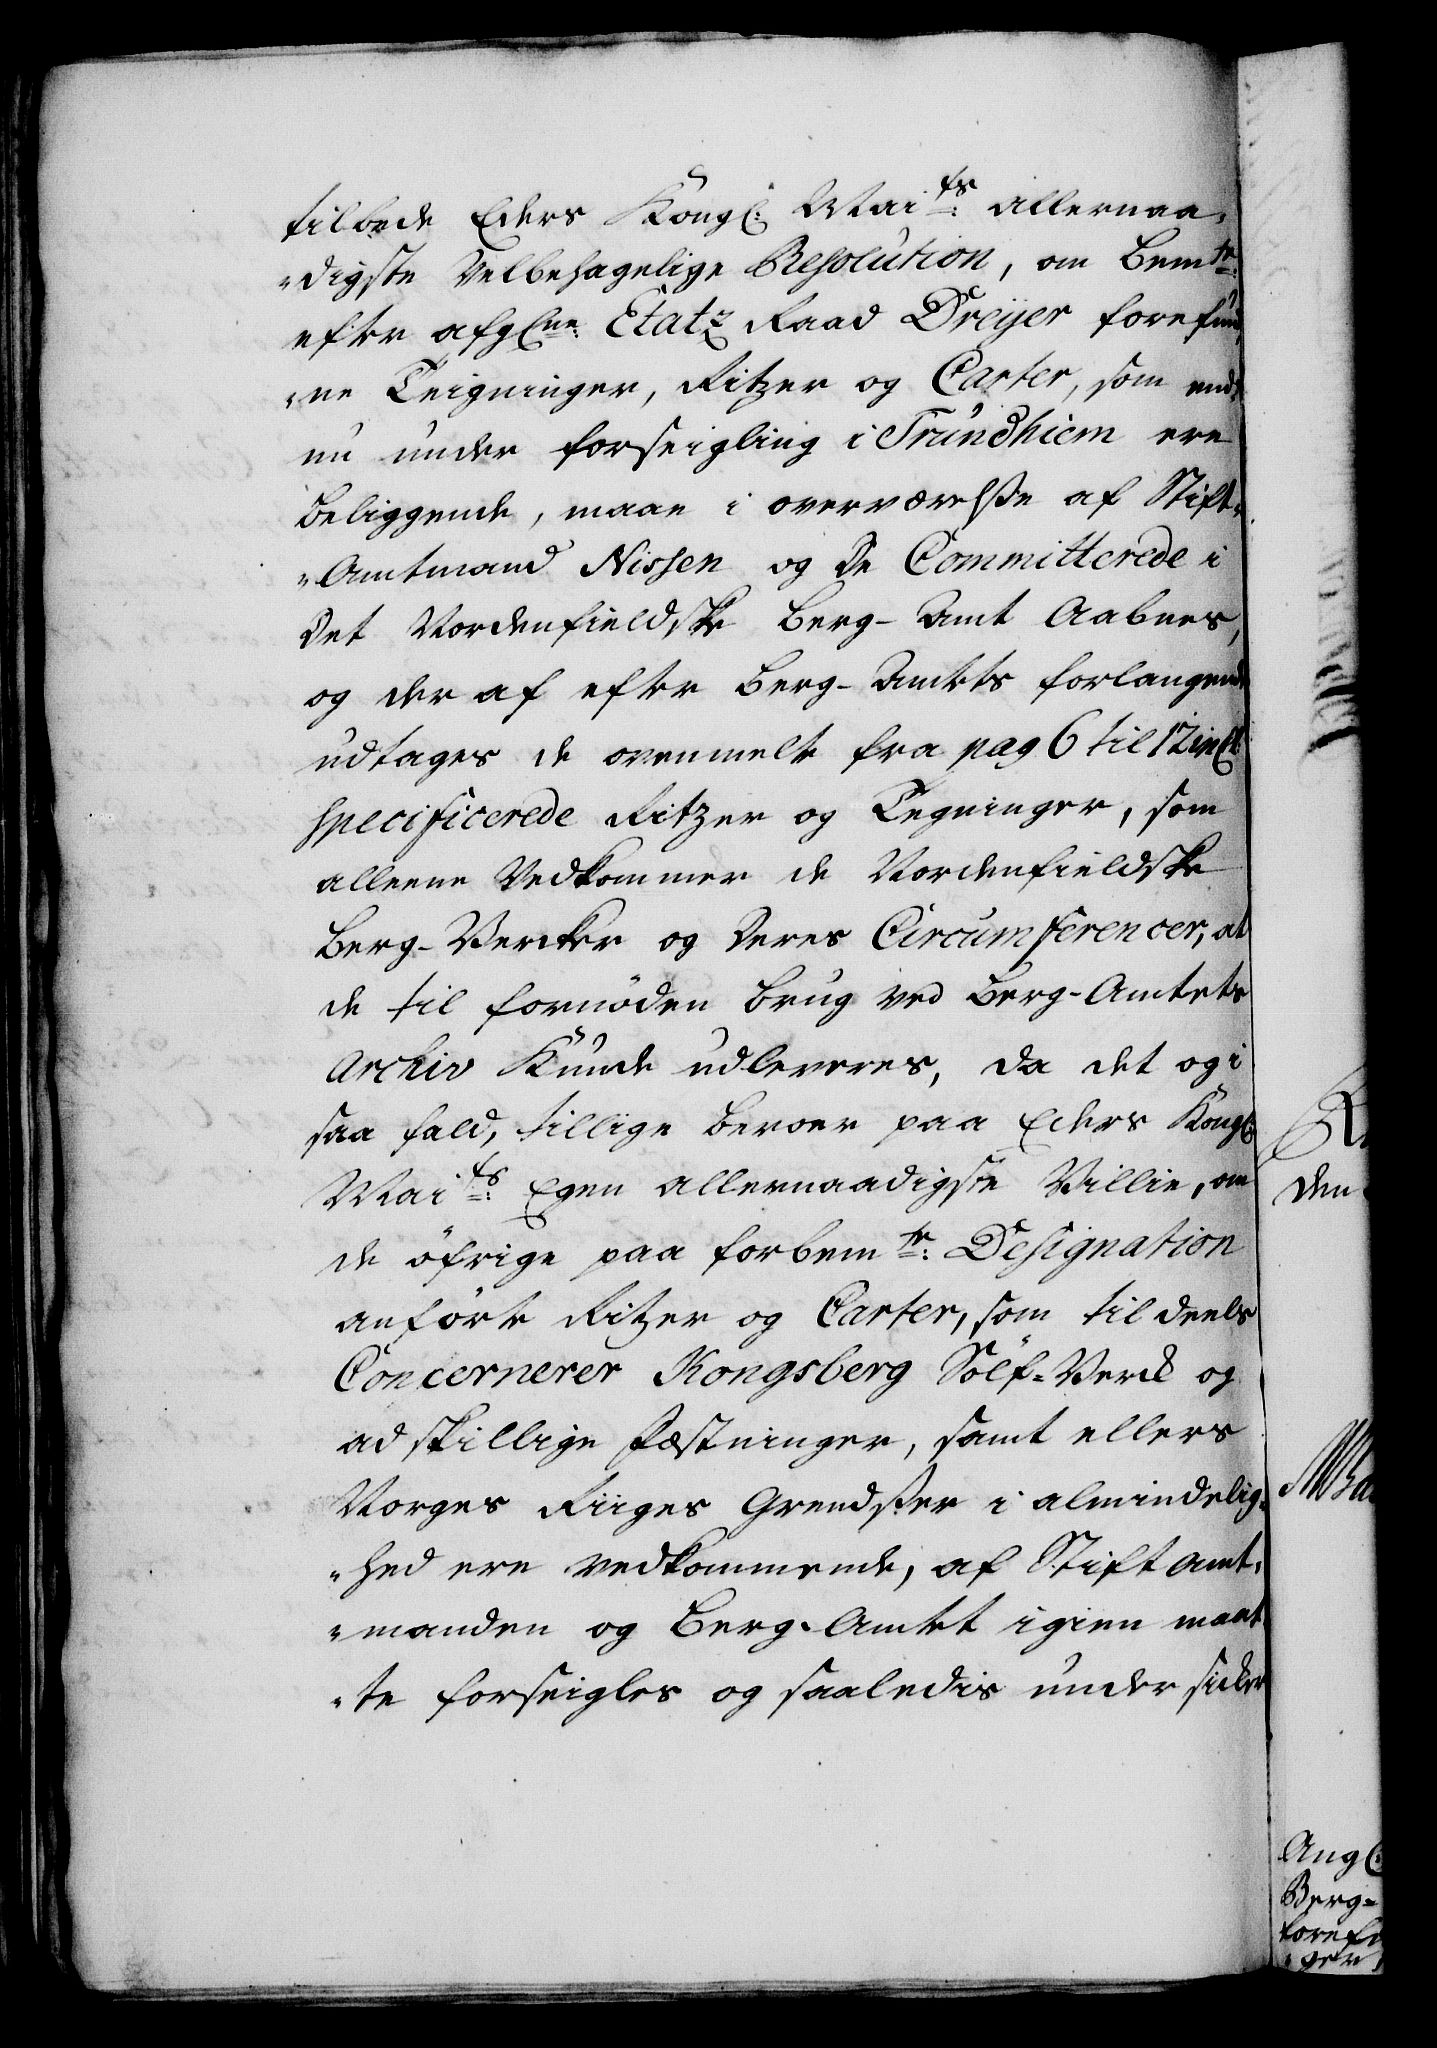 tilbede Eders Kongl: Maits: allernaa-
"digste Velbehagelige Resolution, om bemte:
efter afgl:ne: Etatz Raad Dreÿer forefun-
"ne Teigninger, Ritzer og Carter, som end-
nu under forseigling i Trundhiem ere
beliggende, maae i overværelsse af Stift-
"Amtmand Nissen og De Committerede i
Det Nordenfieldske Berg-Amt Aabnes,
og der af efter Berg-Amtets forlangende
udtages de ovenmelte fra pag 6 til 12 incl:
specificerede Ritzer og Tegninger, som
alleene Vedkommer de Nordenfieldske
Berg-Vercker og deres Circumferencer, at
de til fornöden brug ved Berg-Amtets
Archiv Kunde udleveres, da det og i
saa fald, tillige beroer paa Eders Kongl:
Maits: Egen allernaadigste Villie, om
de öfrige paa forbemte: Designation
anförte Ritzer og Carter, som til deels
Concernerer Kongsberg Sölf-Verck og
adskillige Fæstninger, samt ellers
Norges Riiges Grendsser i almindelig-
"hed ere vedkommende, af Stift Amt-
"manden og Berg-Amtet igien maat-
"te forseigles og saaledis under sicker
den
Angl:
Berg-
forefu
"ger,